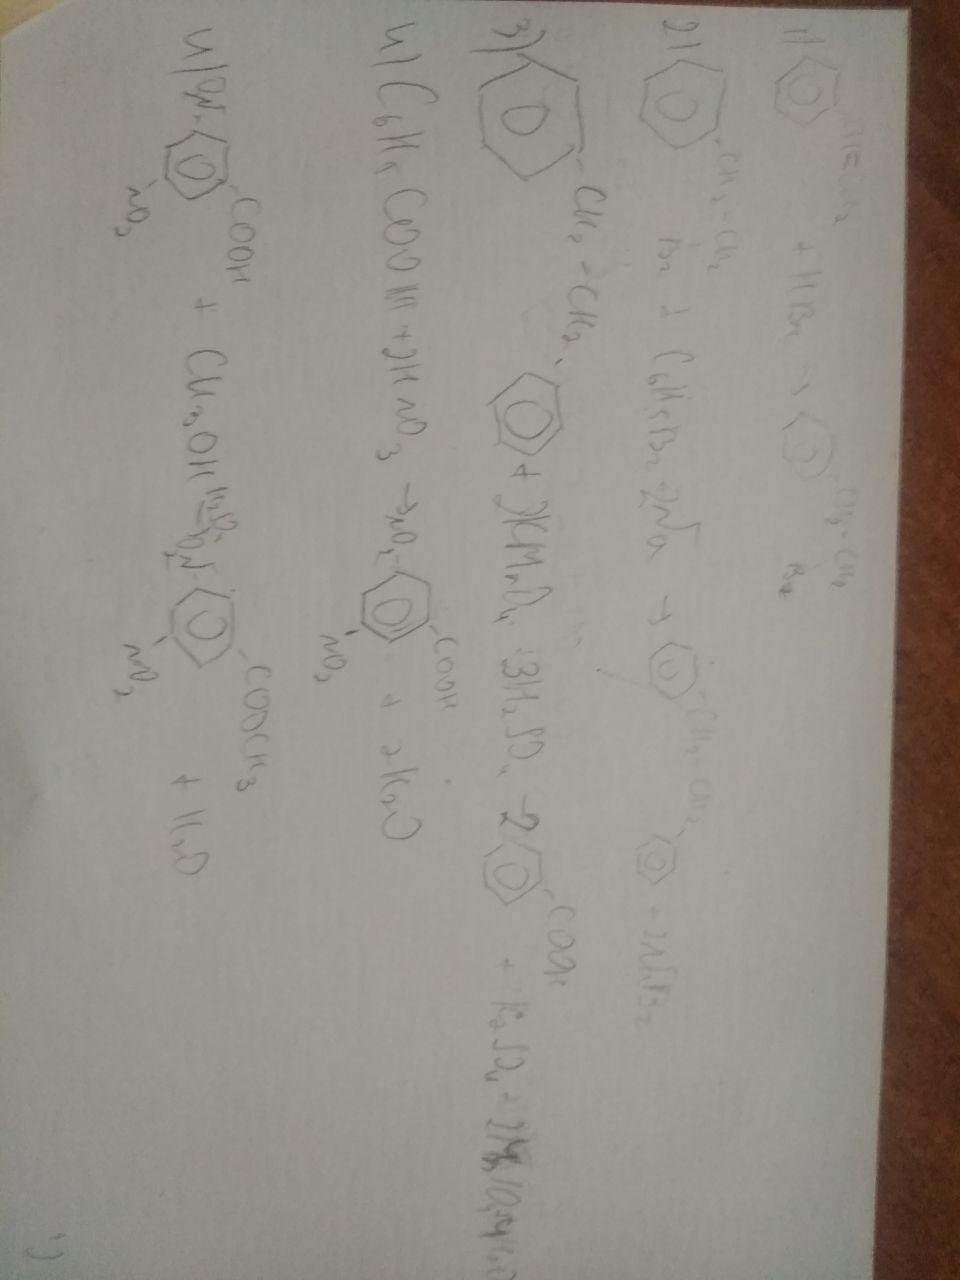 1) CH=CH2 + HBr → CH2-CH2 Br
2) CH2-CH2 Br + C6H5Br + 2Na → CH2-CH2 + 2NaBr
3) CH2-CH2 + 2KMnO4 + 3H2SO4 → 2 COOH + K2SO4 +
4) C6H5COOH + 2HNO3 → NO2 COOH NO2 + 2H2O
COOH NO2 + CH3OH O2N COOCH3 NO2 + H2O